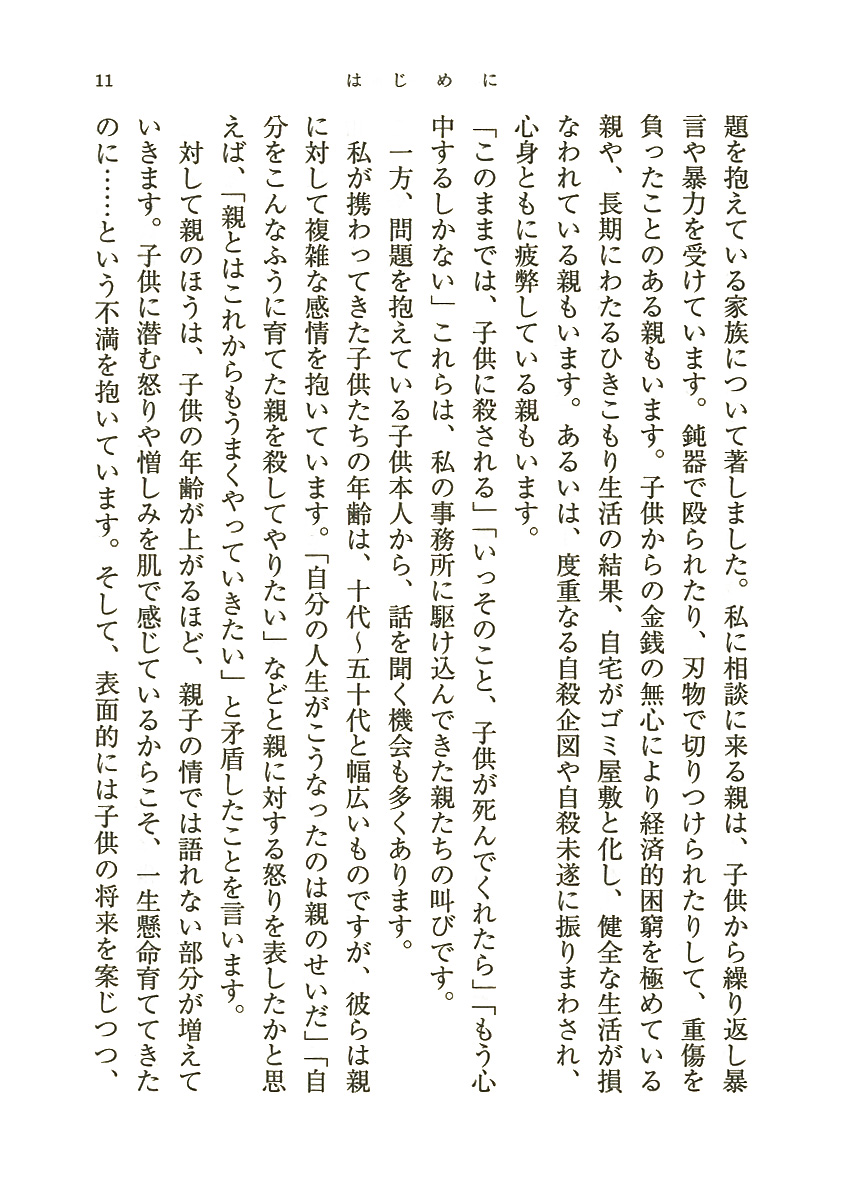 はじめに
11
題を抱えている家族について著しました。私に相談に来る親は、子供から繰り返し暴
言や暴力を受けています。鈍器で殴られたり、刃物で切りつけられたりして、重傷を
負ったことのある親もいます。子供からの金銭の無心により経済的困窮を極めている
親や、長期にわたるひきこもり生活の結果、自宅がゴミ屋敷と化し、健全な生活が損
なわれている親もいます。あるいは、度重なる自殺企図や自殺未遂に振りまわされ、
心身ともに疲弊している親もいます。
「このままでは、子供に殺される」「いっそのこと、子供が死んでくれたら」「もう心
中するしかない」これらは、私の事務所に駆け込んできた親たちの叫びです。
一方、問題を抱えている子供本人から、話を聞く機会も多くあります。
私が携わってきた子供たちの年齢は、十代～五十代と幅広いものですが、彼らは親
に対して複雑な感情を抱いています。「自分の人生がこうなったのは親のせいだ」「自
分をこんなふうに育てた親を殺してやりたい」などと親に対する怒りを表したかと思
えば、「親とはこれからもうまくやっていきたい」と矛盾したことを言います。
対して親のほうは、子供の年齢が上がるほど、親子の情では語れない部分が増えて
いきます。子供に潜む怒りや憎しみを肌で感じているからこそ、一生懸命育ててきた
のに……という不満を抱いています。そして、表面的には子供の将来を案じつつ、